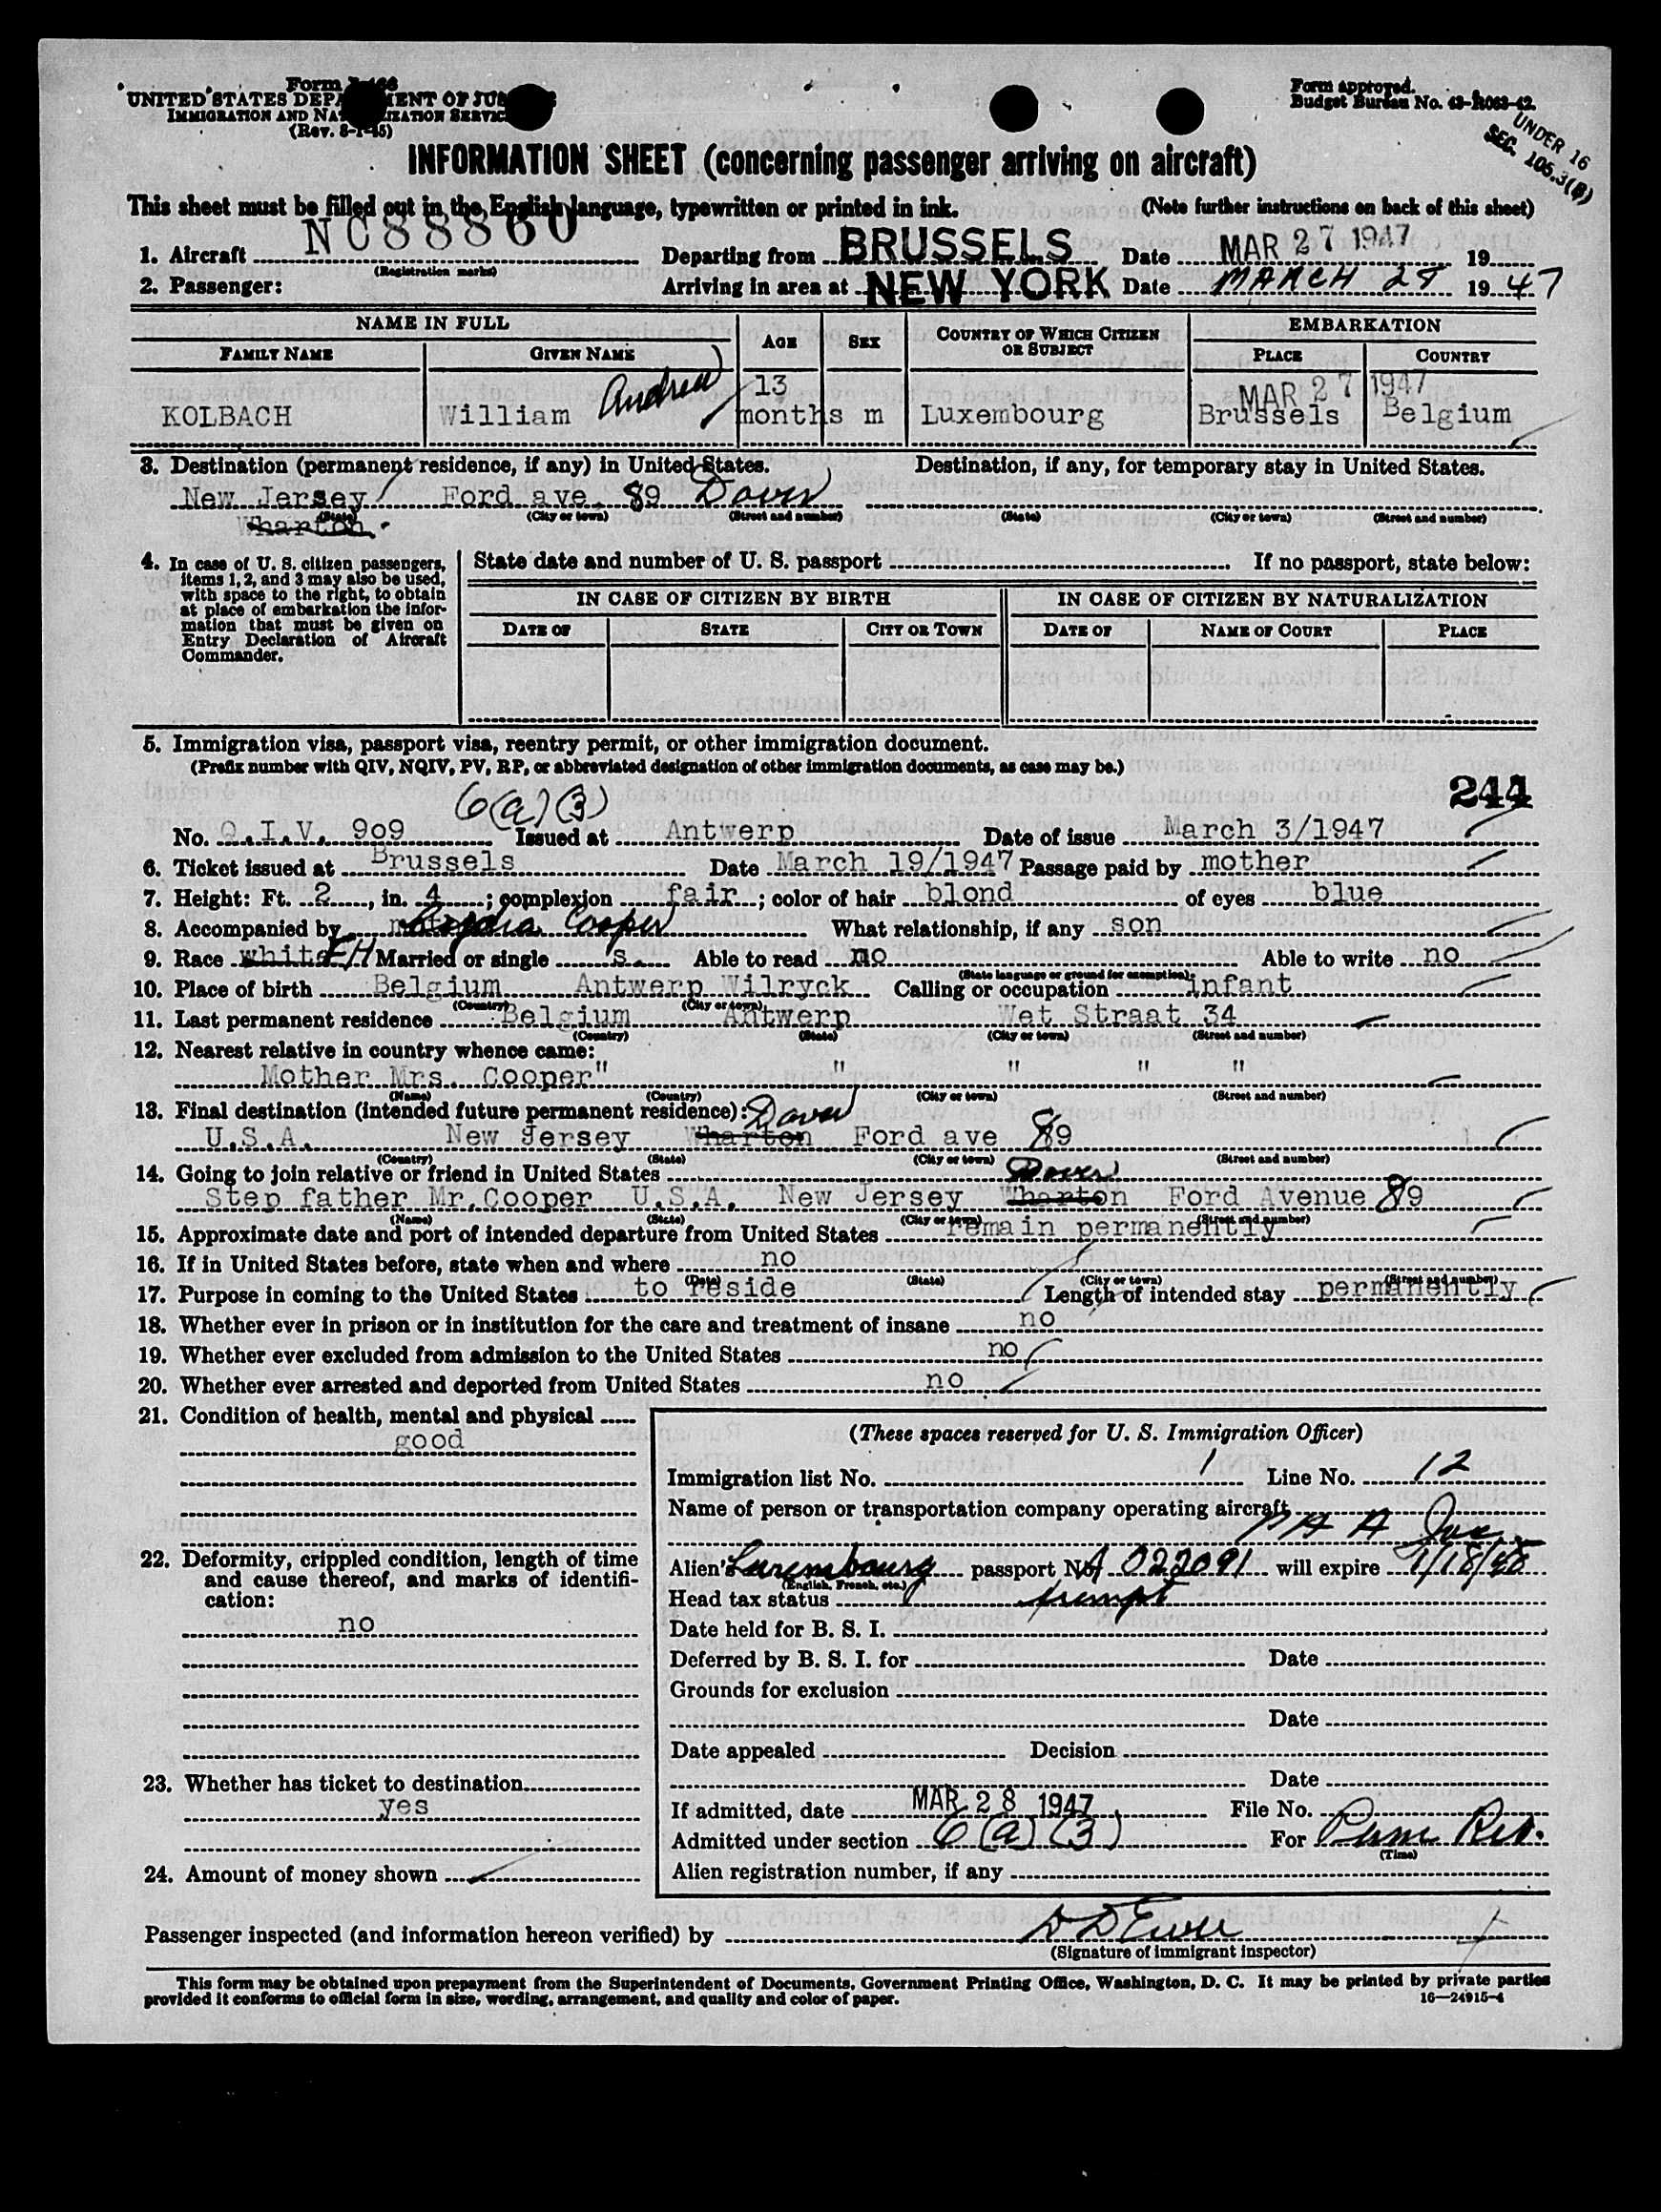 Form I-466
UNITED STATES DEPARTMENT OF JUSTICE
IMMIGRATION AND NATURALIZATION SERVICE
(Rev. 8-1-45)
Form approved.
Budget Bureau No. 43-R063-42.
UNDER 16
SEC. 106.3(B)
INFORMATION SHEET (concerning passenger arriving on aircraft)
This sheet must be filled out in the English language, typewritten or printed in ink. (Note further instructions on back of this sheet)
1. Aircraft NC88860 Departing from BRUSSELS Date MAR 27 1947 19
(Registration marks)
2. Passenger: Arriving in area at NEW YORK Date MARCH 28 1947
NAME IN FULL AGE SEX COUNTRY OF WHICH CITIZEN OR SUBJECT EMBARKATION
FAMILY NAME GIVEN NAME PLACE COUNTRY
KOLBACH William Andrew 13 months m Luxembourg MAR 27 1947 Brussels Belgium
3. Destination (permanent residence, if any) in United States. Destination, if any, for temporary stay in United States.
New Jersey Ford ave. 89 Dover
(State) (City or town) (Street and number) (State) (City or town) (Street and number)
Wharton.
4. In case of U. S. citizen passengers, items 1, 2, and 3 may also be used, with space to the right, to obtain at place of embarkation the information that must be given on Entry Declaration of Aircraft Commander.
State date and number of U. S. passport If no passport, state below:
IN CASE OF CITIZEN BY BIRTH IN CASE OF CITIZEN BY NATURALIZATION
DATE OF STATE CITY OR TOWN DATE OF NAME OF COURT PLACE
5. Immigration visa, passport visa, reentry permit, or other immigration document.
(Prefix number with QIV, NQIV, PV, RP, or abbreviated designation of other immigration documents, as case may be.)
244
6(a)(3)
No. Q.I.V. 909 Issued at Antwerp Date of issue March 3/1947
6. Ticket issued at Brussels Date March 19/1947 Passage paid by mother
7. Height: Ft. 2, in. 4; complexion fair; color of hair blond of eyes blue
8. Accompanied by Cooper What relationship, if any son
9. Race white Married or single s. Able to read no Able to write no
(State language or ground for exemption)
10. Place of birth Belgium Antwerp Wilryck Calling or occupation infant
(Country) (City or town)
11. Last permanent residence Belgium Antwerp Wet Straat 34
(Country) (State) (City or town) (Street and number)
12. Nearest relative in country whence came:
Mother Mrs. Cooper" " " " "
(Name) (Country) (City or town) (Street and number)
13. Final destination (intended future permanent residence): Dover
U.S.A. New Jersey Wharton Ford ave 89
(Country) (State) (City or town) (Street and number)
14. Going to join relative or friend in United States Dover
Step father Mr.Cooper U.S.A. New Jersey Wharton Ford Avenue 89
(Name) (State) (City or town) (Street and number)
15. Approximate date and port of intended departure from United States remain permanently
16. If in United States before, state when and where no
(Date) (State) (City or town) (Street and number)
17. Purpose in coming to the United States to reside Length of intended stay permanently
18. Whether ever in prison or in institution for the care and treatment of insane no
19. Whether ever excluded from admission to the United States no
20. Whether ever arrested and deported from United States no
21. Condition of health, mental and physical
good
22. Deformity, crippled condition, length of time and cause thereof, and marks of identification:
no
23. Whether has ticket to destination
yes
24. Amount of money shown
(These spaces reserved for U. S. Immigration Officer)
Immigration list No. 1 Line No. 12
Name of person or transportation company operating aircraft
P A A Inc.
Alien's Luxembourg passport No. A 022091 will expire 1/18/48
(English, French, etc.)
Head tax status exempt
Date held for B. S. I.
Deferred by B. S. I. for Date
Grounds for exclusion
Date
Date appealed Decision
Date
If admitted, date MAR 28 1947 File No.
Admitted under section 6(a)(3) For Perm Res.
(Time)
Alien registration number, if any
Passenger inspected (and information hereon verified) by
(Signature of immigrant inspector)
This form may be obtained upon prepayment from the Superintendent of Documents, Government Printing Office, Washington, D. C. It may be printed by private parties
provided it conforms to official form in size, wording, arrangement, and quality and color of paper. 16—24915-4